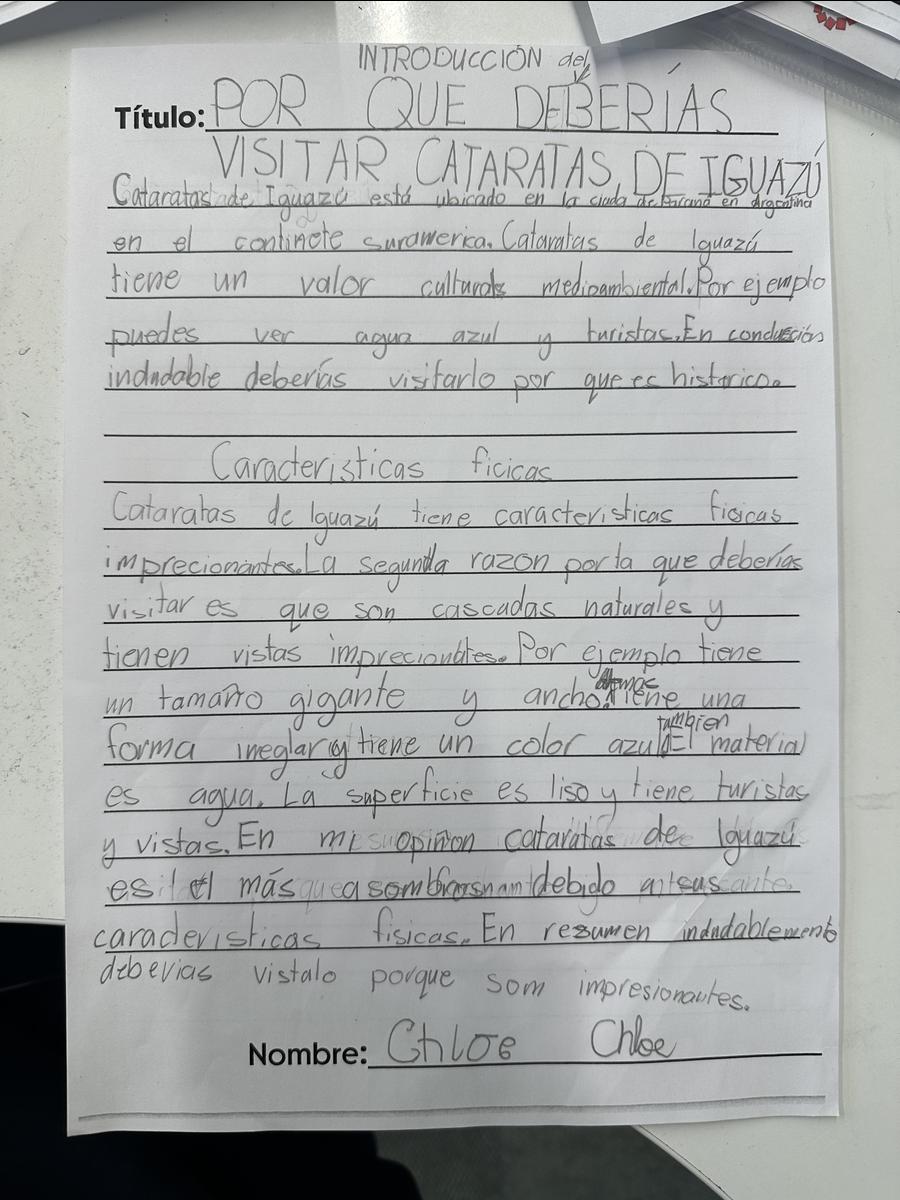 INTRODUCCIÓN del
Título: POR QUE DEBERÍAS
VISITAR CATARATAS DE IGUAZÚ
Cataratas de Iguazú está ubicado en la ciuda de Paraná en Argentina
en el continete suramerica. Cataratas de Iguazú
tiene un valor cultural medioambiental. Por ejemplo
puedes ver agua azul y turistas. En conclución
indudable deberías visitarlo por que es historico.
Caracteristicas ficicas
Cataratas de Iguazú tiene caracteristicas ficicas
imprecionantes. La segunda razon por la que deberías
visitar es que son cascadas naturales y
tienen vistas imprecionates. Por ejemplo tiene
un tamaño gigante y ancho. Además tiene una
forma ineglar y tiene un color azul. También El material
es agua. La superficie es liso y tiene turistas
y vistas. En mi opiñon cataratas de Iguazú
es el más asombros debido a sus
caracteristicas fisicas. En resumen indudablemente
deberias vistalo porque som impresionautes.
Nombre: Chloe Chloe